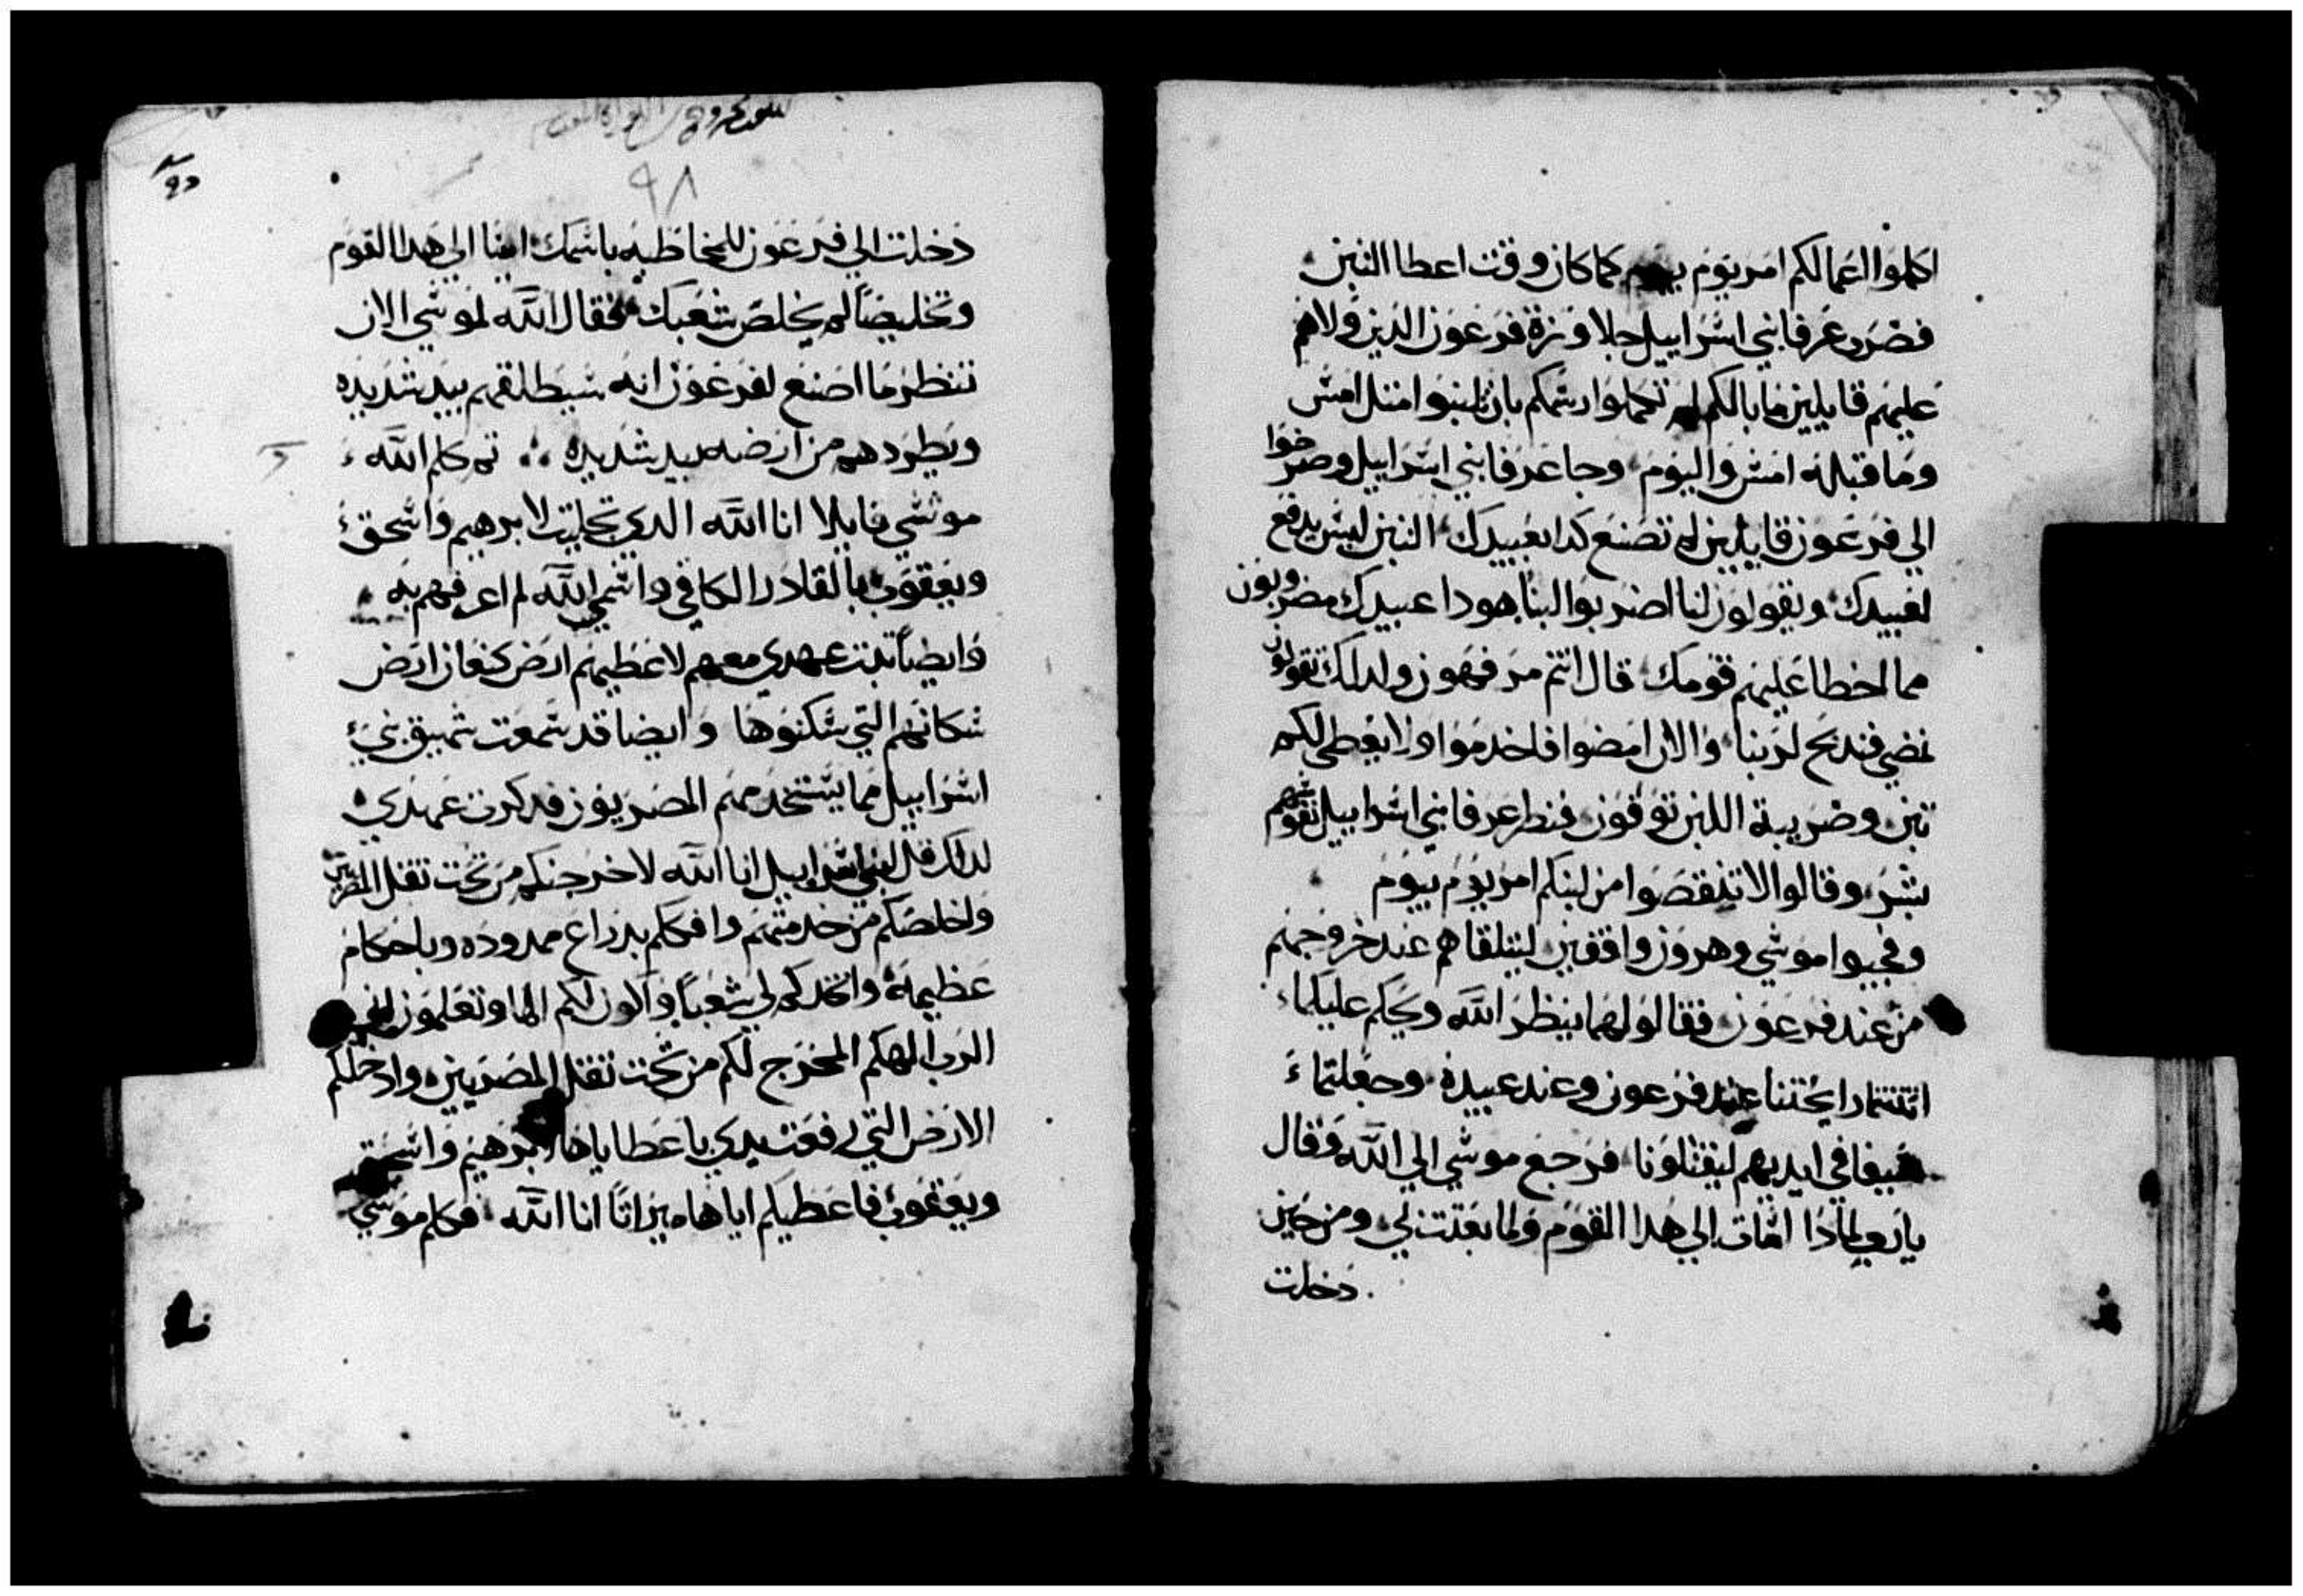 اكلوا اعمالكم امر يوم بيوم كما كان وقت اعطا التبن
فضرب عرفا بني اسراييل جلاوزة فرعون الذين ولاهم
عليهم قايلين ما بالكم لم تكملوا رسمكم بان تلبنوا امتل امس
وما قبله امس واليوم وجا عرفا بني اسراييل وصرخوا
الي فرعون قايلين لم تصنع كدا بعبيدك التبن ليس يدفع
لعبيدك ويقولون لنا اضربوا لبنا هودا عبيدك مضروبون
مما اخطا عليهم قومك قال انتم مرفهون ولدلك تقولون
نمضي فندبح لربنا والان امضوا فاخدموا ولا يعطى لكم
تبن وضريبة اللبن توفون فنطر عرفا بني اسراييل نفوسهم
بشر وقالوا لا تنقصوا من لبنكم امر يوم بيوم
وفجيوا موسي وهرون واقفين ليتلقاهم عند خروجهم
من عند فرعون فقالو لهما ينظر الله ويحكم عليكما
انتنتما رايحتنا عند فرعون وعند عبيده وجعلتما
سيفا في ايديهم ليقتلونا فرجع موسي الي الله فقال
يارب لمادا اسات الي هدا القوم ولما بعتتني ومن حين
دخلت
٩٨
دخلت الي فرعون للمخاطبه باسمك اسا الي هدا القوم
وتخليصا لم يخلص شعبك فقال الله لموسي الان
تنظر ما اصنع لفرعون انه سيطلقهم بيد شديده
ويطردهم من ارضه بيد شديده ∴ تم كلم الله
موسي قايلا انا الله الدي تجليت لابرهيم واسحق
ويعقوب بالقادر الكافي واسمي الله لم اعرفهم به
وايضا تبت عهدي معهم لاعطيهم ارض كنعان ارض
سكانهم التي سكنوها وايضا قد سمعت شهيق بني
اسراييل مما يستخدمهم المصريون فدكرت عهدي
لدلك قل لبني اسراييل انا الله لاخرجنكم من تحت تقل المصريين
واخلصكم من خدمتهم وافككم بدراع ممدوده وباحكام
عظيمة واتخدكم لي شعبا واكون لكم الها وتعلمون اني
الرب الهكم المخرج لكم من تحت تقل المصريين وادخلكم
الارض التي رفعت يدي باعطاياها ابرهيم واسحق
ويعقوب فاعطيكم اياها ميراتا انا الله فكلم موسي